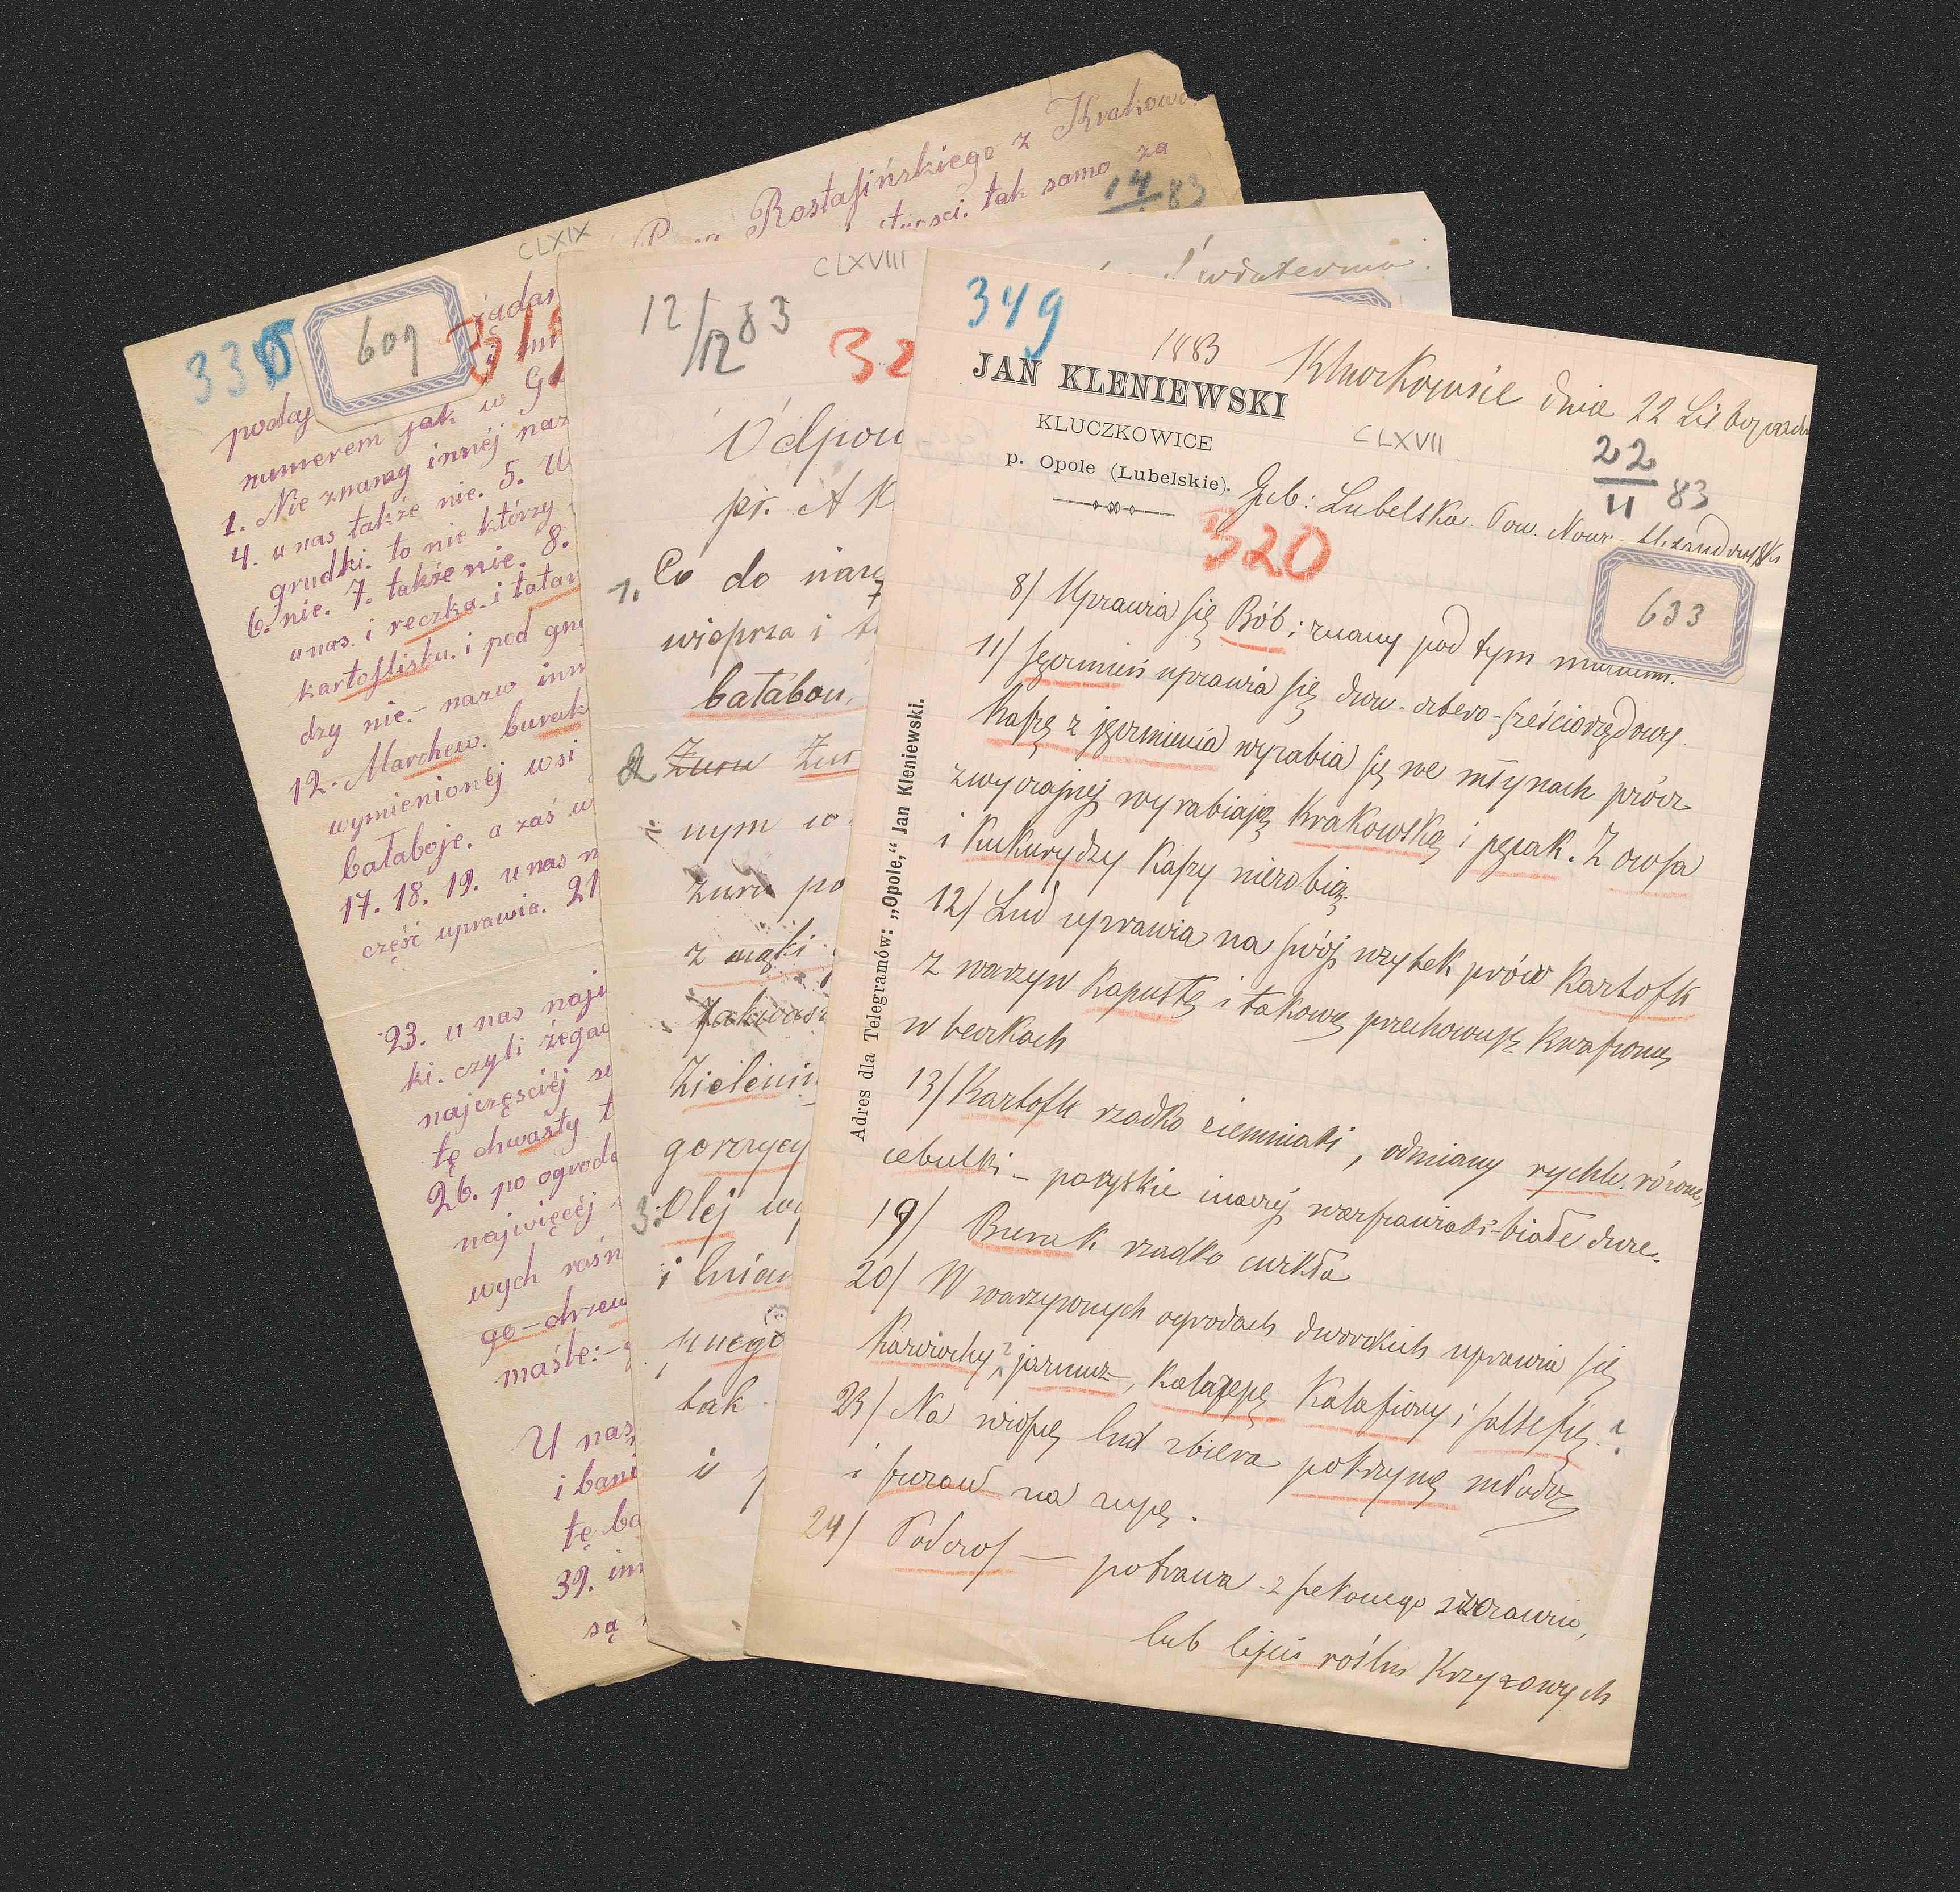 Rostafińskiego z Krakowa
tak samo za
14 83
CLXIX
335
609
żądan
podaj
numerem jak w
1. Nie znamy innéj naz
4. u nas także nie. 5. U
grudki. to nie którzy
6. nie. 7. także nie. 8.
u nas. i reczka. i tatar
kartoflisku. i pod gn
dzy nie.- nazw inn
12. Marchew. burak
wymienionéj wsi
bałaboje. a zaś w
17. 18. 19. u nas n
część uprawia. 21
23. u nas naj
ki. czyli żega
najczęsciéj
tę chwasty t
26. po ogrod
najwięcéj
wych rośn
go-chrzen
maśle:-
U nas
i bani
tę ba
39. in
są
CLXVIII
12/12 83
32
Odpow
pr. A K
1. Co do nazw
wieprza i
bałabou,
2 Żuru Żur
nym w
żuru po
z mąki
Zakwasz
Zielenin
gorczycy
3. Olej wy
i lnian
pnego
tak
i p
349
1883
Kluczkowice dnia 22 Listopada
JAN KLENIEWSKI
KLUCZKOWICE
p. Opole (Lubelskie).
CLXVII
22/11 83
Gub: Lubelska. Pow. Nowo-Alexandryjski
320
633
Adres dla Telegramów: „Opole,“ Jan Kleniewski.
8/ Uprawia się Bób; znany pod tym mianem.
11/ Jęczmień uprawia się dwu-cztero-sześciorzędowy.
Kaszę z jęczmienia wyrabia się we młynach prócz
zwyczajnej wyrabiają Krakowską i pęcak. Z owsa
i Kukurydzy Kaszy nierobią.
12/ Lud uprawia na swój użytek prócz Kartofli
z warzyw Kapustę i takową przechowują Kwaszoną
w beczkach
13/ Kartofle rzadko ziemniaki, odmiany rychle. różowe,
cebulki - paryskie inaczéj warszawiaki-białe duże.
19/ Burak rzadko ćwikła
20/ W warzywnych ogrodach dworskich uprawia się
Karczochy,? jarmuż, Kalarepę Kalafiory i salsefię.?
23/ Na wiosnę lud zbiera pokrzywę młodą
i szczaw na zupę.
24/ Podcios — potrawa z siekanego szczawiu,
lub liści roślin Krzyżowych